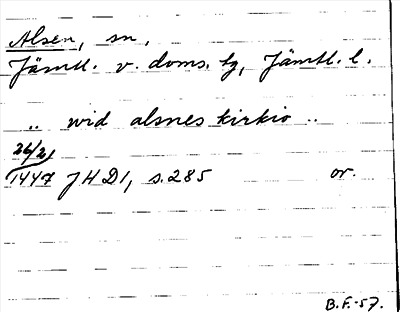 Alsen, sn,
Jämtl. v. doms. tg, Jämtl. l.
.. wid alsnes kirkio ..
26/2
1447 JHD1, s. 285 or.
B.F.-57.